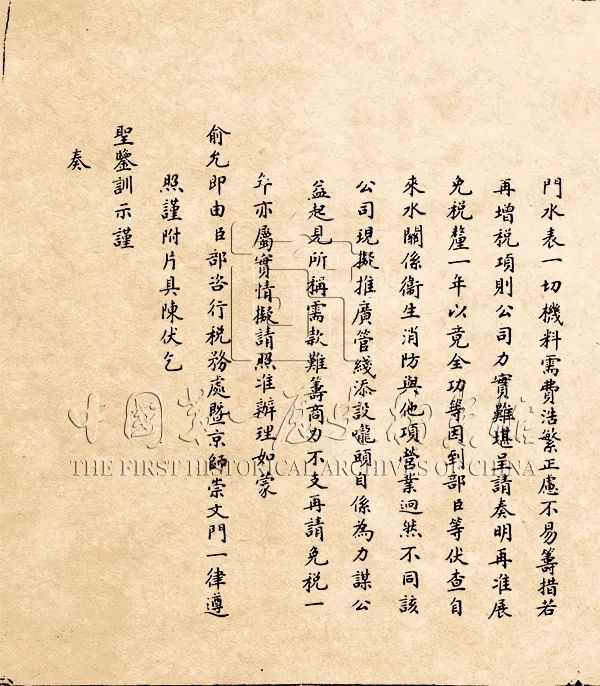 門水表一切機料需費浩繁正慮不易籌措若
再增税項則公司力實難堪呈請奏明再准展
免税釐一年以竟全功等因到部臣等伏查自
來水關係衛生消防與他項營業迥然不同該
公司現擬推廣管綫添設嚨頭自係為力謀公
益起見所稱需款難籌商力不支再請免税一
年亦屬實情擬請照准辦理如蒙
俞允即由臣部咨行税務處暨京師崇文門一律遵
照謹附片具陳伏乞
聖鑒訓示謹
奏
中國第一歷史檔案館
THE FIRST HISTORICAL ARCHIVES OF CHINA